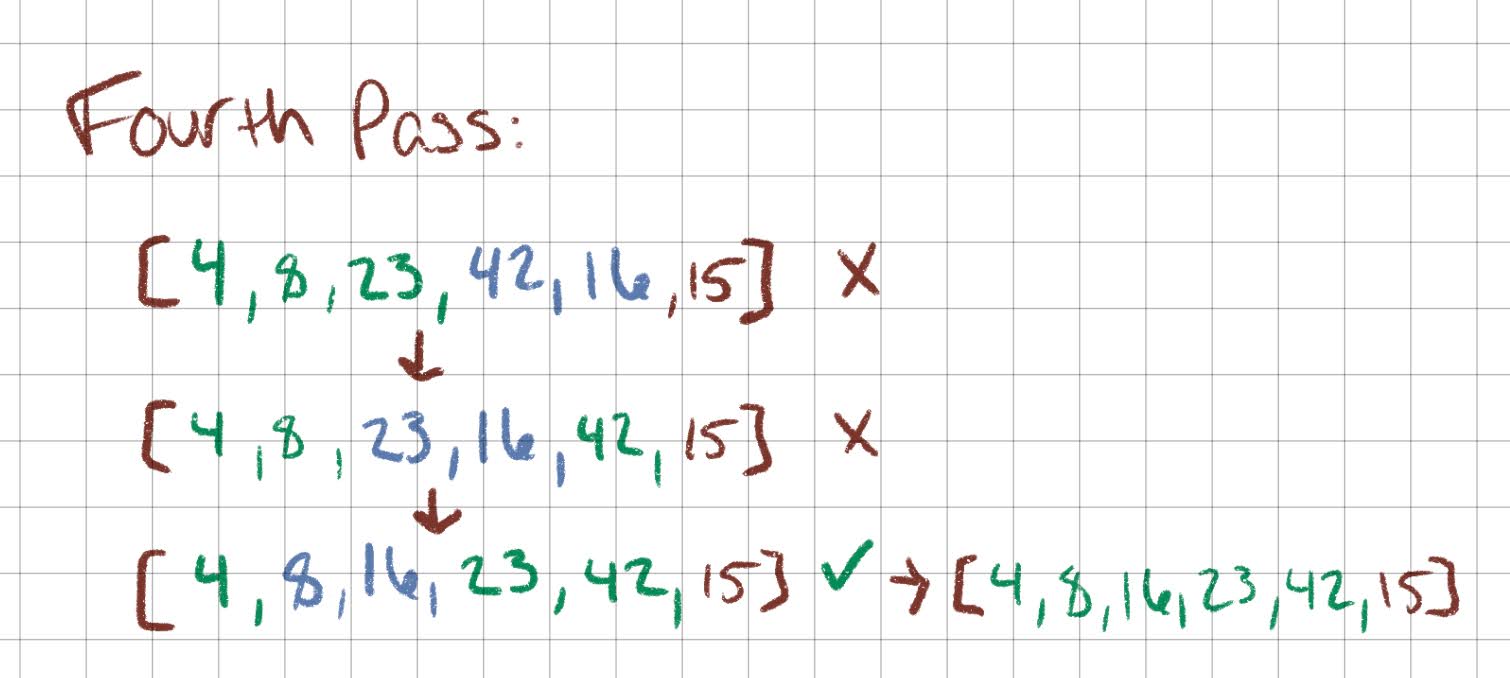 Fourth Pass:
[4, 8, 23, 42, 16, 15] X
↓
[4, 8, 23, 16, 42, 15] X
↓
[4, 8, 16, 23, 42, 15] ✓ → [4, 8, 16, 23, 42, 15]